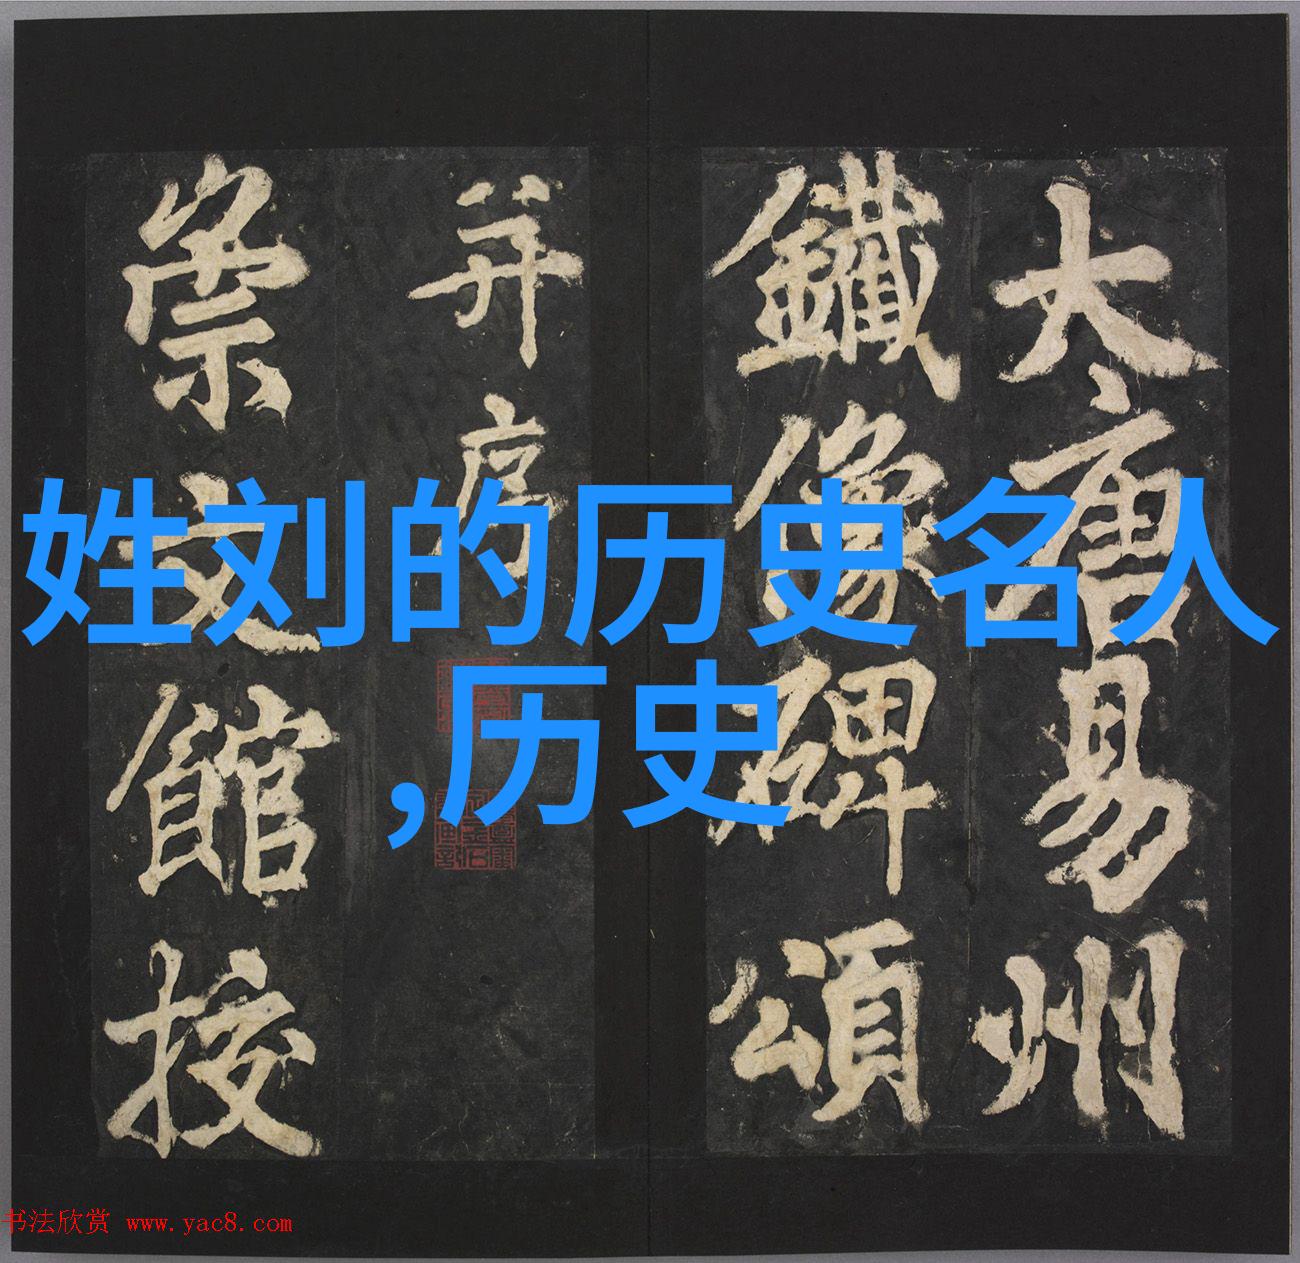 姓刘的历史名人
,历史
大唐易州
鐵像碑頌
并序
崇文館校
书法欣赏 www.yac8.com